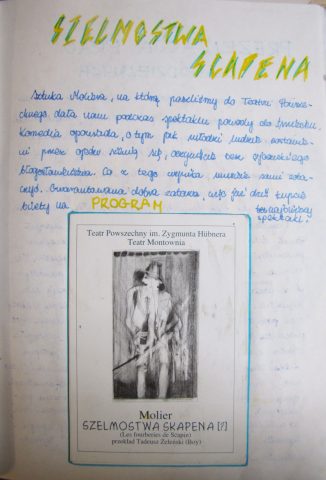 SZELMOSTWA
SCAPENA
Sztuka Moliera, na którą poszliśmy do Teatru Powsze-
chnego dała nam podczas spektaklu powody do śmiechu.
Komedia opowiada o tym jak młodzi ludzie
przez ojców żenią się, oczywiście bez ojcowskiego
błogosławieństwa. Co z tego wynika musicie sami zoba-
czyć. Gwarantowana dobra zabawa, więc już dziś kupcie
bilety na
PROGRAM
spektakl!
Teatr Powszechny im. Zygmunta Hübnera
Teatr Montownia
Molier
SZELMOSTWA SKAPENA [?]
(Les fourberies de Scapin)
przekład Tadeusz Żeleński (Boy)